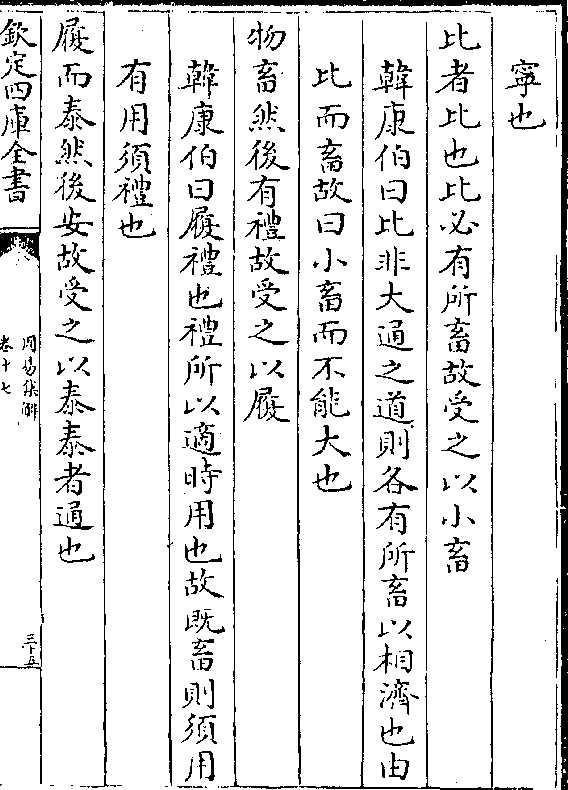 寧也
比者比也比必有所畜故受之以小畜
韓康伯曰比非大通之道則各有所畜以相濟也由
比而畜故曰小畜而不能大也
物畜然後有禮故受之以履
韓康伯曰履禮也禮所以適時用也故既畜則須用
有用須禮也
履而泰然後安故受之以泰泰者通也
欽定四庫全書
周易集解
卷十七
三十五